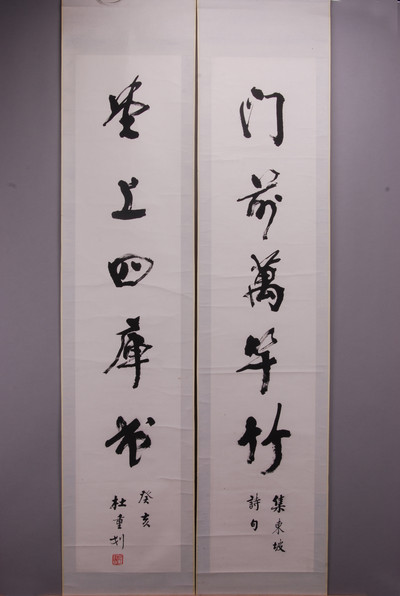 门前萬竿竹
集東坡
詩句
堂上四庫书
癸亥
杜重划